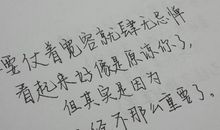 要仗着宽容就肆无忌惮
看起来好像是原谅你了，
但其实是因为
不那么重要了。